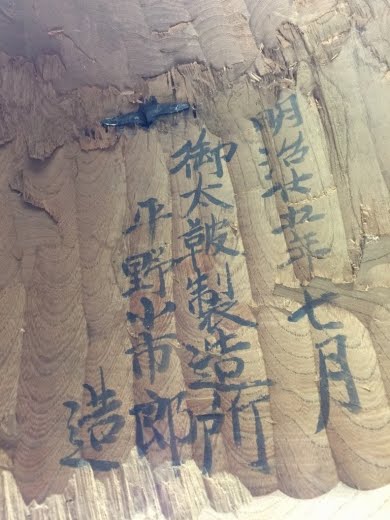 明治廿五年七月
御太皷製造所
平野小市郎
造